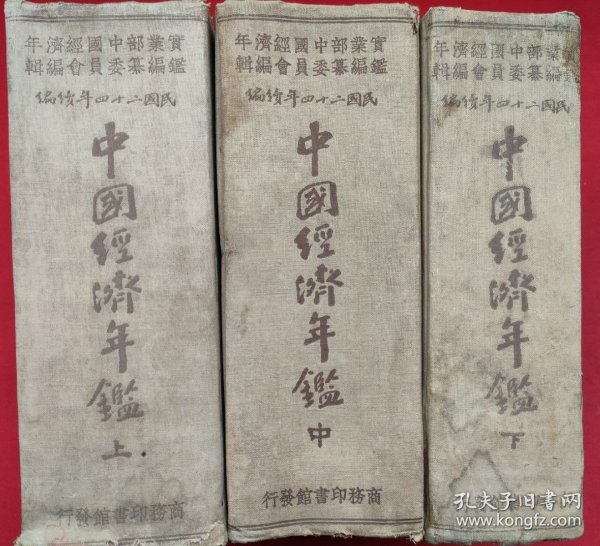 實業部中國經濟年
鑑編纂委員會編輯
民國二十四年續編
中國經濟年鑑
上
商務印書館發行
實業部中國經濟年
鑑編纂委員會編輯
民國二十四年續編
中國經濟年鑑
中
商務印書館發行
實業部中國經濟年
鑑編纂委員會編輯
民國二十四年續編
中國經濟年鑑
下
孔夫子旧书网
www.kongfz.com